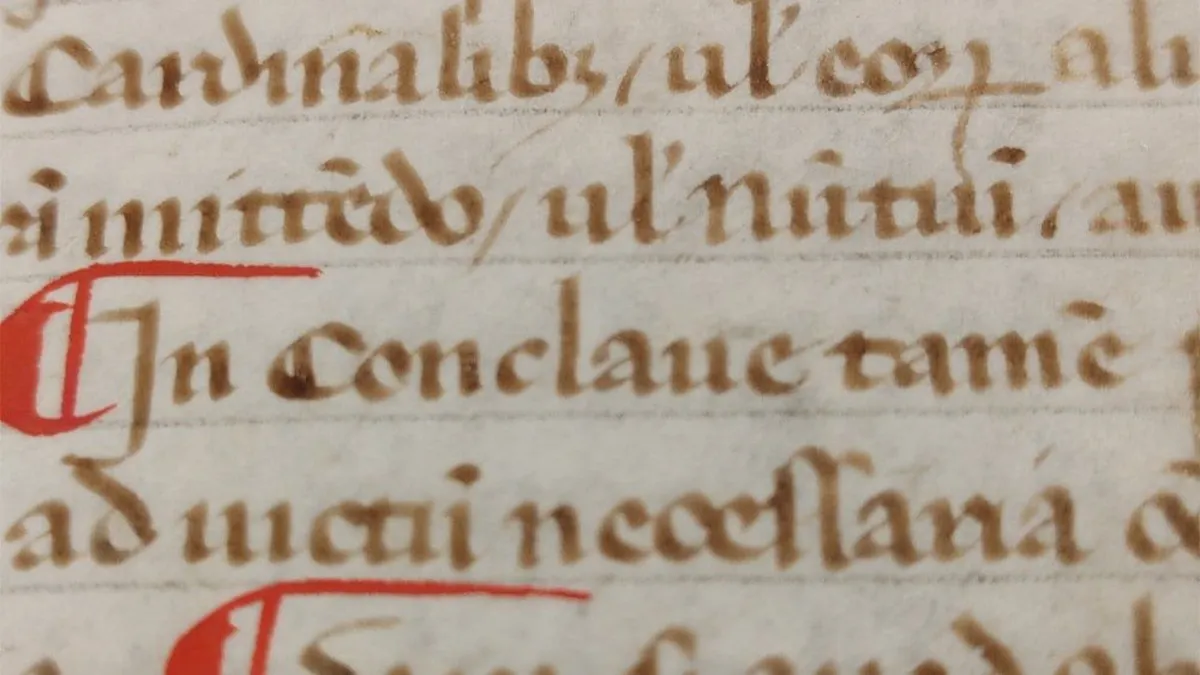 Cardīalibꝫ / ul' eoꝝ ali
ri mittēdo / ul' nūtiū / au
¶ In Conclaue tamē
ad uictū necessaria